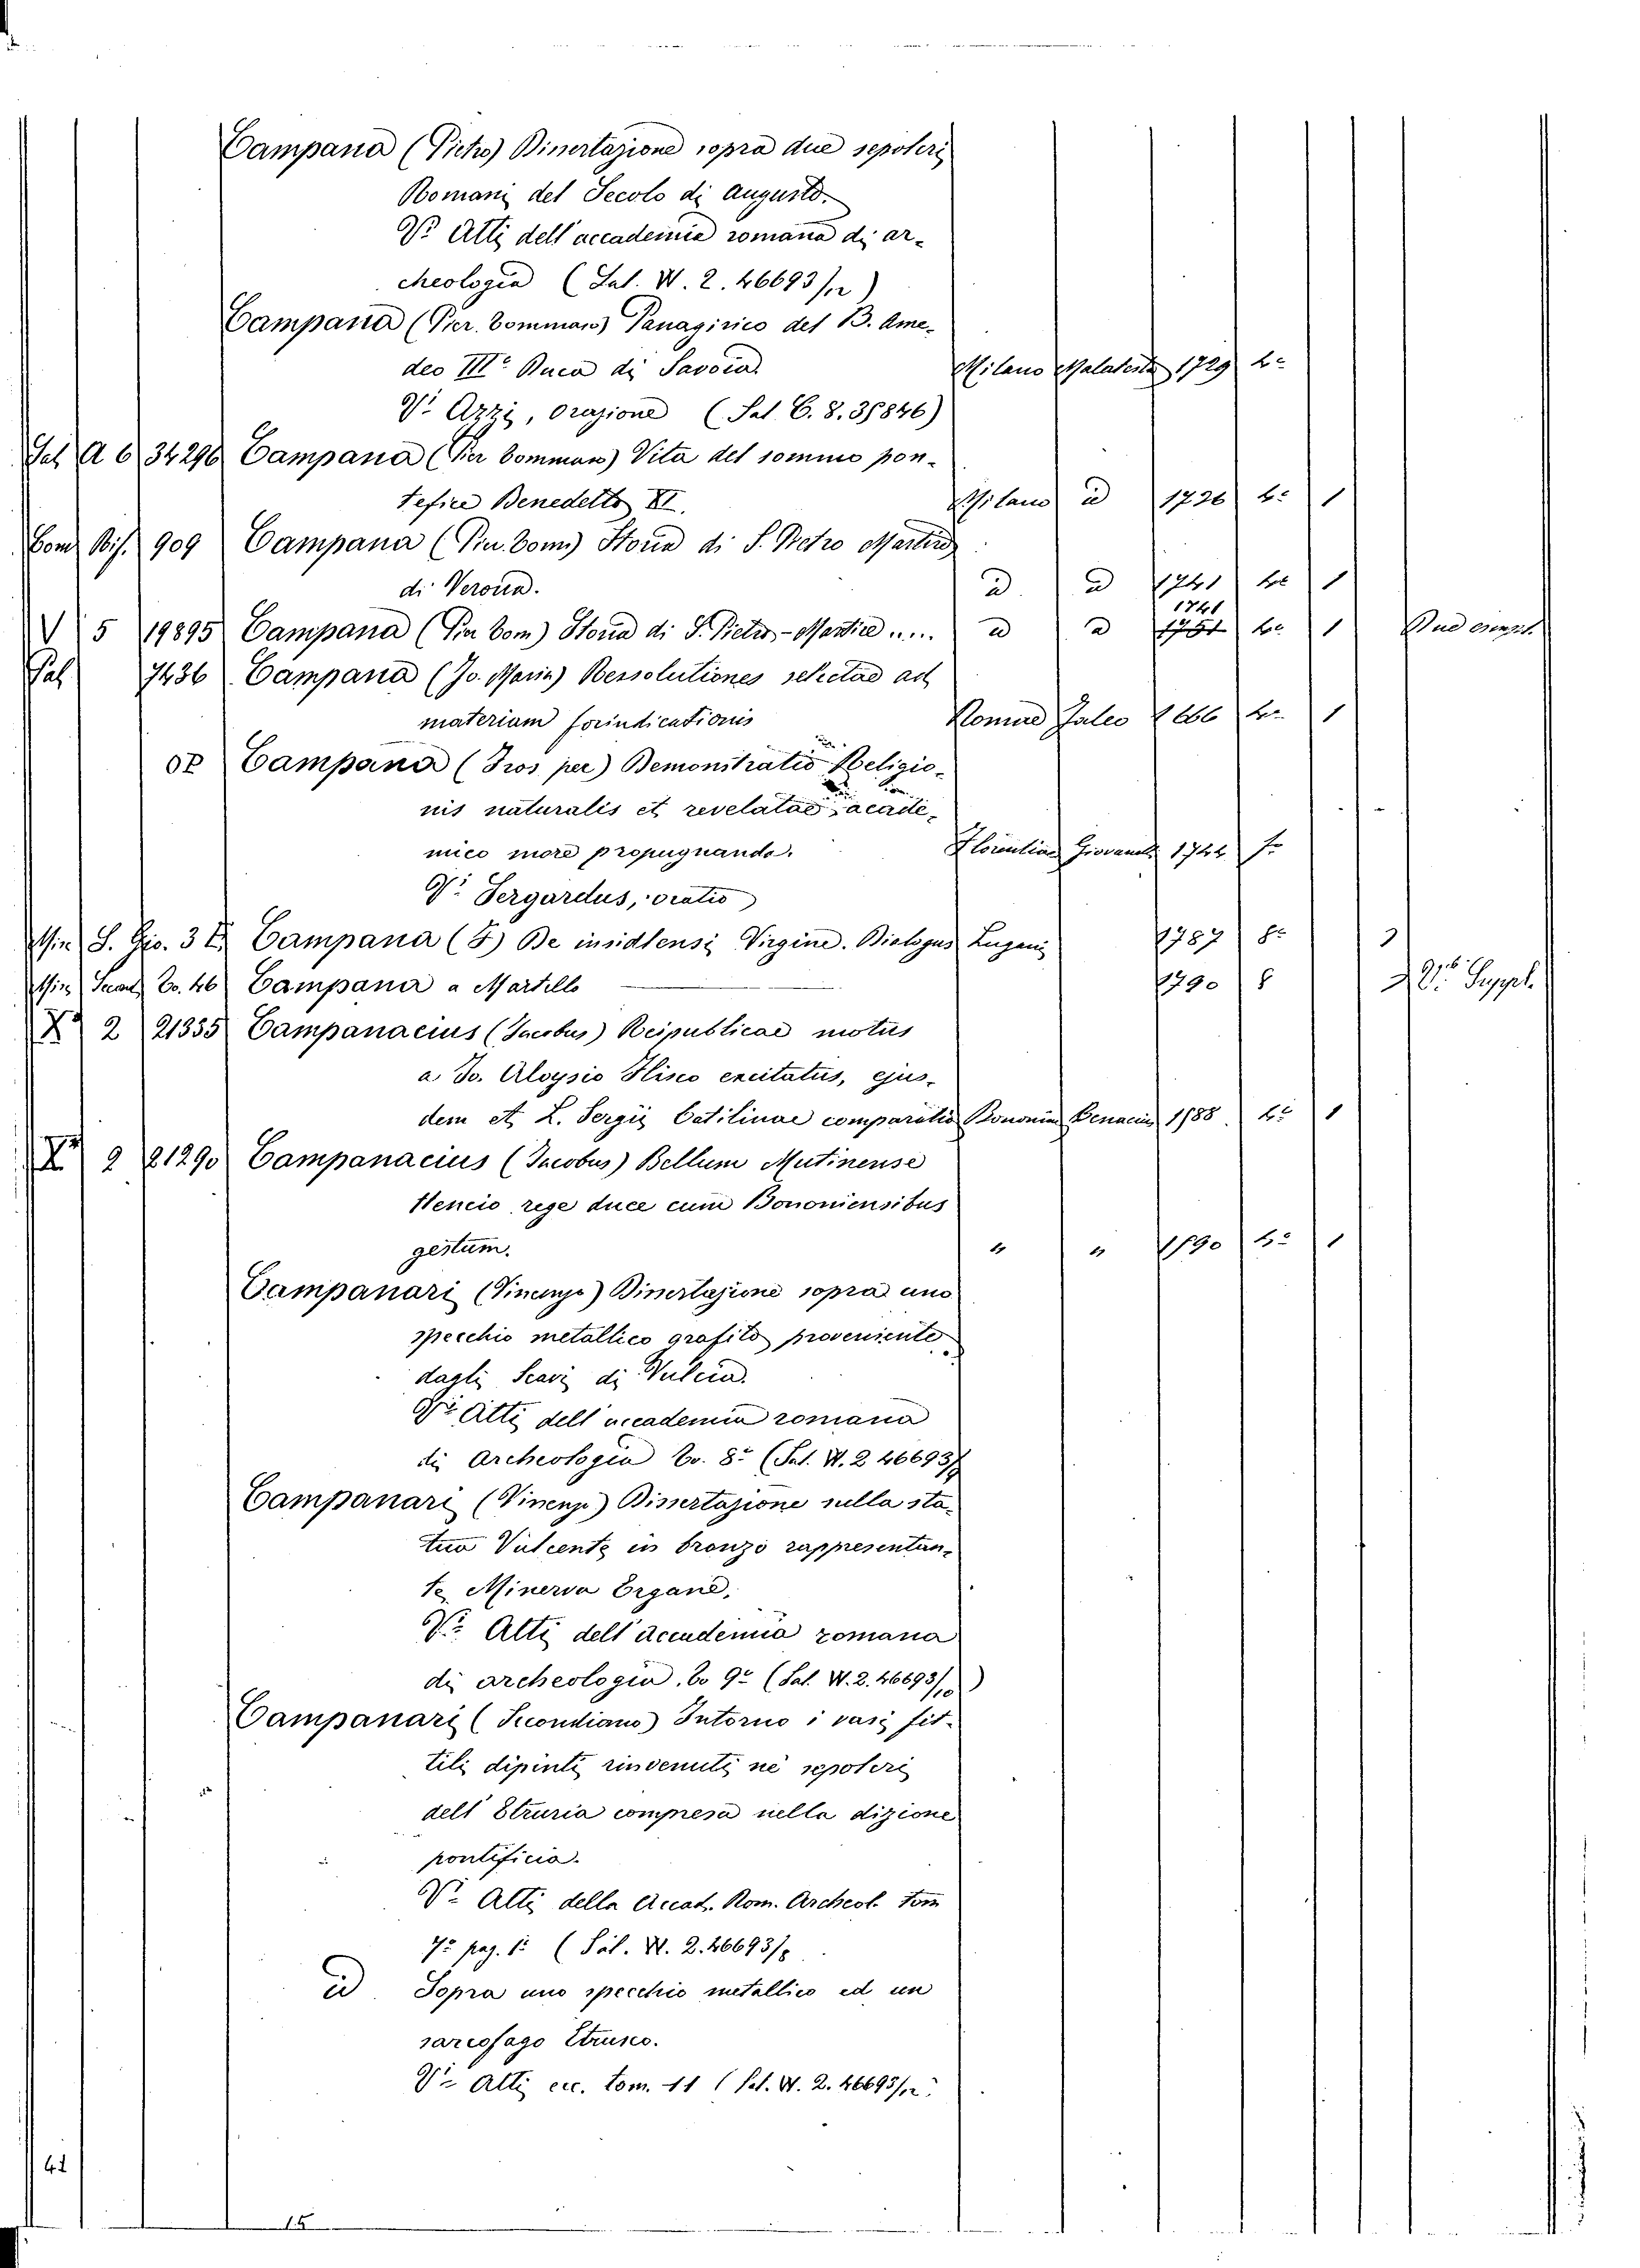 Campana (Pietro) Dissertazione sopra due sepolcri
Romani del Secolo di Augusto.
Vi Atti dell'accademia romana di ar-
cheologia (Sal. W. 2. 46693/12)
Campana (Pier. Tommaso) Panagirico del B. Ame-
deo III.o Duca di Savoia. Milano Malatesta 1729 4.o
Vi Azzi, orazione (Sal. C. 8. 35846)
Sal A 6 34296 Campana (Pier Tommaso) Vita del sommo pon-
tefice Benedetto XI. Milano id 1736 4.o 1
Com Bif. 909 Campana (Pier. Tom) Storia di S. Pietro Martire
di Verona. id id 1741 4.o 1
V 5 19895 Campana (Pier Tom) Storia di S. Pietro-Martire .... id id 1741 4.o 1 Due esempl.
Sal 7436 Campana (Jo. Maria) Ressolutiones selectae ad
materiam forindicationis Romae Falco 1666 4.o 1
Campana (Pros per) Demonstratio Religio-
nis naturalis et revelatae acade-
mico more propugnando. Florentiae Giovanelli 1744 f.o
Vi Sergardus, oratio
Min S. Gio. 3 t. Campana (F) De insidlensi Virgine. Dialogus Lugani 1787 8.o
Min Co. 46 Campana a Martello 1790 8 Vi Suppl.
X 2 21335 Campanacius (Jacobus) Reipublicae motus
a Jo. Aloysio Flisco excitatus, ejus-
dem et L. Sergii Catilinae comparatio Bononiae Benacius 1588 4.o 1
X 2 21290 Campanacius (Jacobus) Bellum Mutinense
Hencio rege duce cum Bononiensibus
gestum. " " 1590 4.o 1
Campanari (Vincenzo) Dissertazione sopra uno
specchio metallico grafito proveniente
dagli Scavi di Vulcia.
Vi Atti dell'accademia romana
di Archeologia To. 8.o (Sal. W. 2 46693/9
Campanari (Vincenzo) Dissertazione sulla sta-
tua Vulcente in bronzo rappresentan-
te Minerva Ergane.
Vi Atti dell'accademia romana
di archeologia. To 9.o (Sal. W. 2. 46693/10)
Campanari (Secondiano) Intorno i vasi fit-
tili dipinti rinvenuti ne sepolcri
dell Etruria compresa nella dizione
pontificia.
Vi Atti della Accad. Rom. Archeol. tom
7.o pag. 1.o (Sal. W. 2. 46693/8
id Sopra uno specchio metallico ed un
sarcofago Etrusco.
Vi Atti ecc. tom. 11 (Sal. W. 2. 46693/12
42
15